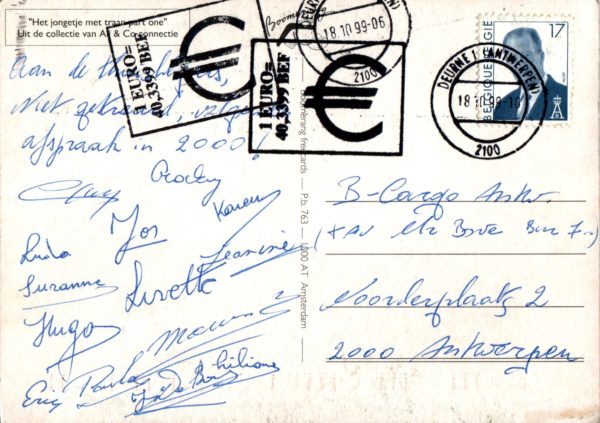 "Het jongetje met traan part one"
Uit de collectie van Ali & Co connectie
1 EURO=
40,3399 BEF
1 EURO=
40,3399 BEF
€
€
DEURNE 1 (ANTWERPEN)
18.10.99-06
2100
DEURNE 1 (ANTWERPEN)
18.10.99-
2100
17
BELGIQUE BELGIË
Boomerang freecards — P.b. 763 — 1000 AT Amsterdam
Aan de
Niet getreurd,
afspraak in 2000!
Guy
Jos
Karen
Luda
Jeannine
Suzanne
Lisette
Hugo
Eric
Paula
B-Cargo Antw.
Noorderplaats 2
2000 Antwerpen